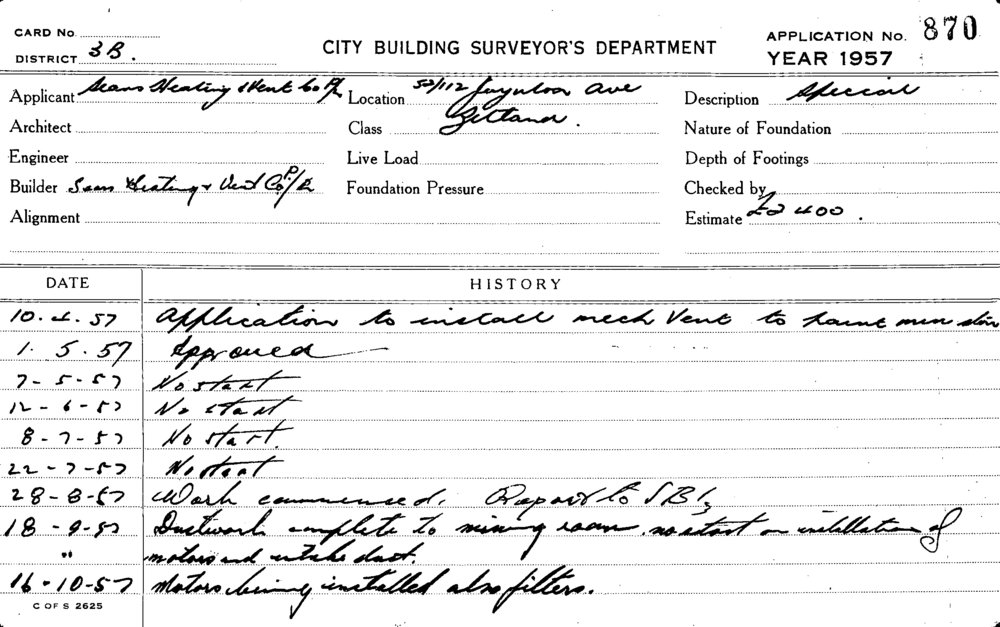 CARD No.
DISTRICT 3B.
CITY BUILDING SURVEYOR'S DEPARTMENT
APPLICATION No. 870
YEAR 1957
Applicant Sears Heating & Vent Co P/L
Location 52/112 Joynton Ave
Zetland.
Description Special
Architect
Class
Nature of Foundation
Engineer
Live Load
Depth of Footings
Builder Sears Heating & Vent Co P/L
Foundation Pressure
Checked by
Alignment
Estimate £2400.
DATE
HISTORY
10.4.57 Application to install mech Vent to paint
1.5.57 Approved
7-5-57 No start
12-6-57 No start
8-7-57 No start.
22-7-57 No start
28-8-57 Work commenced. Report to SBI
18-9-57 Ductwork complete to mixing room no start on installation of
" motors and intake duct.
16-10-57 Motors being installed also filters.
C OF S 2625